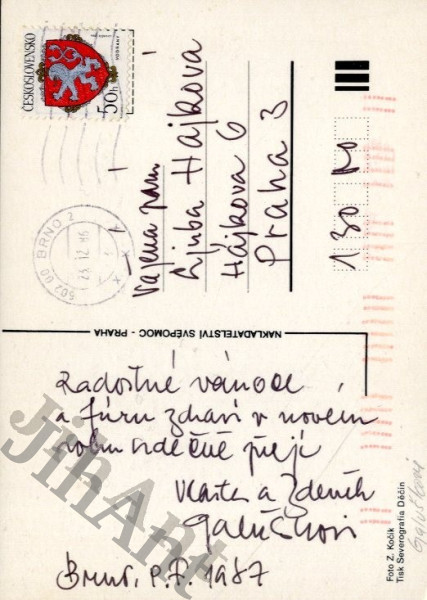 ČESKOSLOVENSKO
50h
HODKOVY
602 00 BRNO 2
23.12.86
Vážená paní
Ljuba Hájková
Hájkova 6
Praha 3
130 00
NAKLADATELSTVÍ SVÉPOMOC - PRAHA
Radostné vánoce
a fůru zdraví v novém
roku srdečně přejí
Vlasta a Zdeněk
Galuškovi
Brno, P.F. 1987
Foto Z. Kočík
Tisk Severografia Děčín
Galuškovi
JihAnt